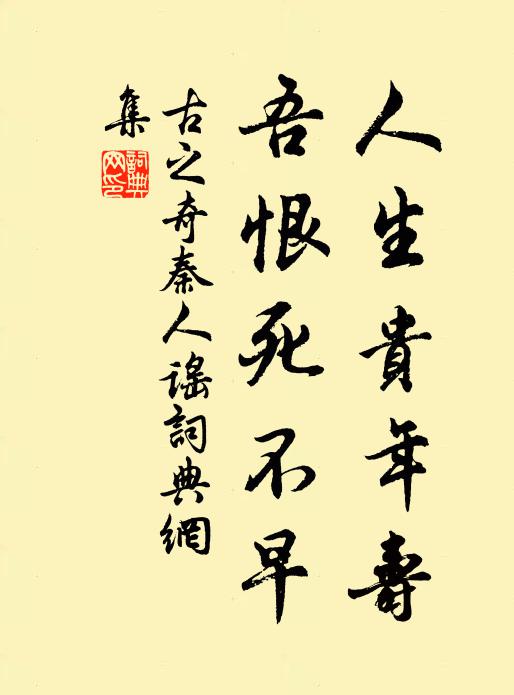 人生貴年壽
吾恨死不早
古之奇秦人謠詞典網
集
詞典
网印